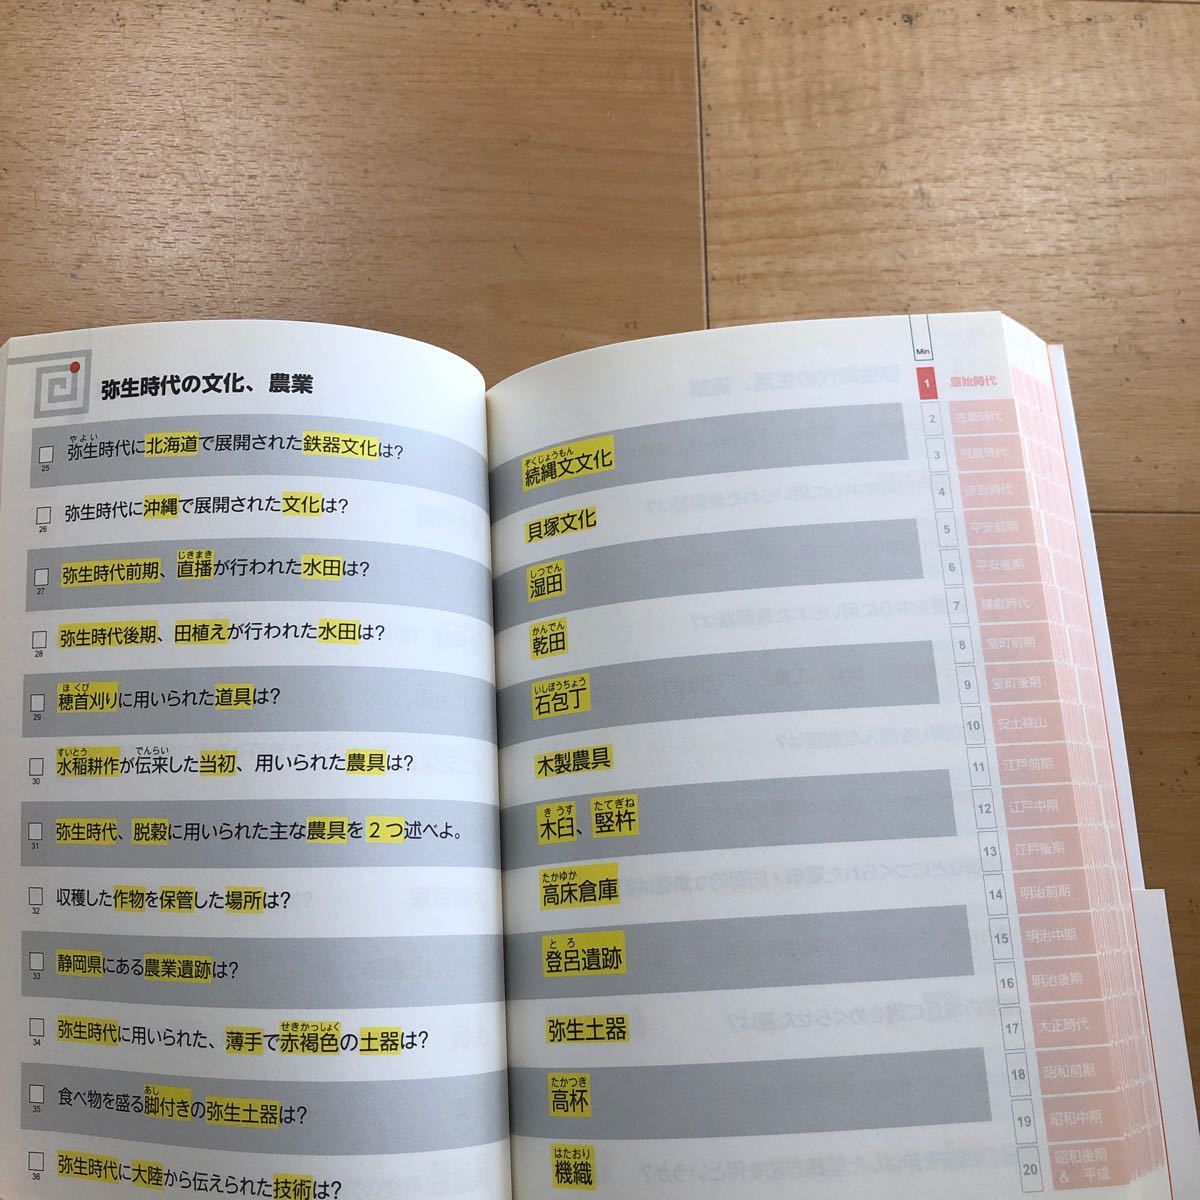 弥生時代の文化、農業
25 弥生時代に北海道で展開された鉄器文化は?
やよい
26 弥生時代に沖縄で展開された文化は?
27 弥生時代前期、直播が行われた水田は?
じきまき
28 弥生時代後期、田植えが行われた水田は?
29 穂首刈りに用いられた道具は?
ほくび
30 水稲耕作が伝来した当初、用いられた農具は?
すいとう でんらい
31 弥生時代、脱穀に用いられた主な農具を2つ述べよ。
32 収穫した作物を保管した場所は?
33 静岡県にある農業遺跡は?
34 弥生時代に用いられた、薄手で赤褐色の土器は?
せきかっしょく
35 食べ物を盛る脚付きの弥生土器は?
あし
36 弥生時代に大陸から伝えられた技術は?
ぞくじょうもん
続縄文文化
貝塚文化
しつでん
湿田
かんでん
乾田
いしぼうちょう
石包丁
木製農具
きうす たてぎね
木臼、竪杵
たかゆか
高床倉庫
とろ
登呂遺跡
弥生土器
たかつき
高杯
はたおり
機織
Min
1 原始時代
2 古墳時代
3 飛鳥時代
4 奈良時代
5 平安前期
6 平安後期
7 鎌倉時代
8 室町前期
9 室町後期
10 安土桃山
11 江戸前期
12 江戸中期
13 江戸後期
14 明治前期
15 明治中期
16 明治後期
17 大正時代
18 昭和前期
19 昭和中期
20 昭和後期
& 平成